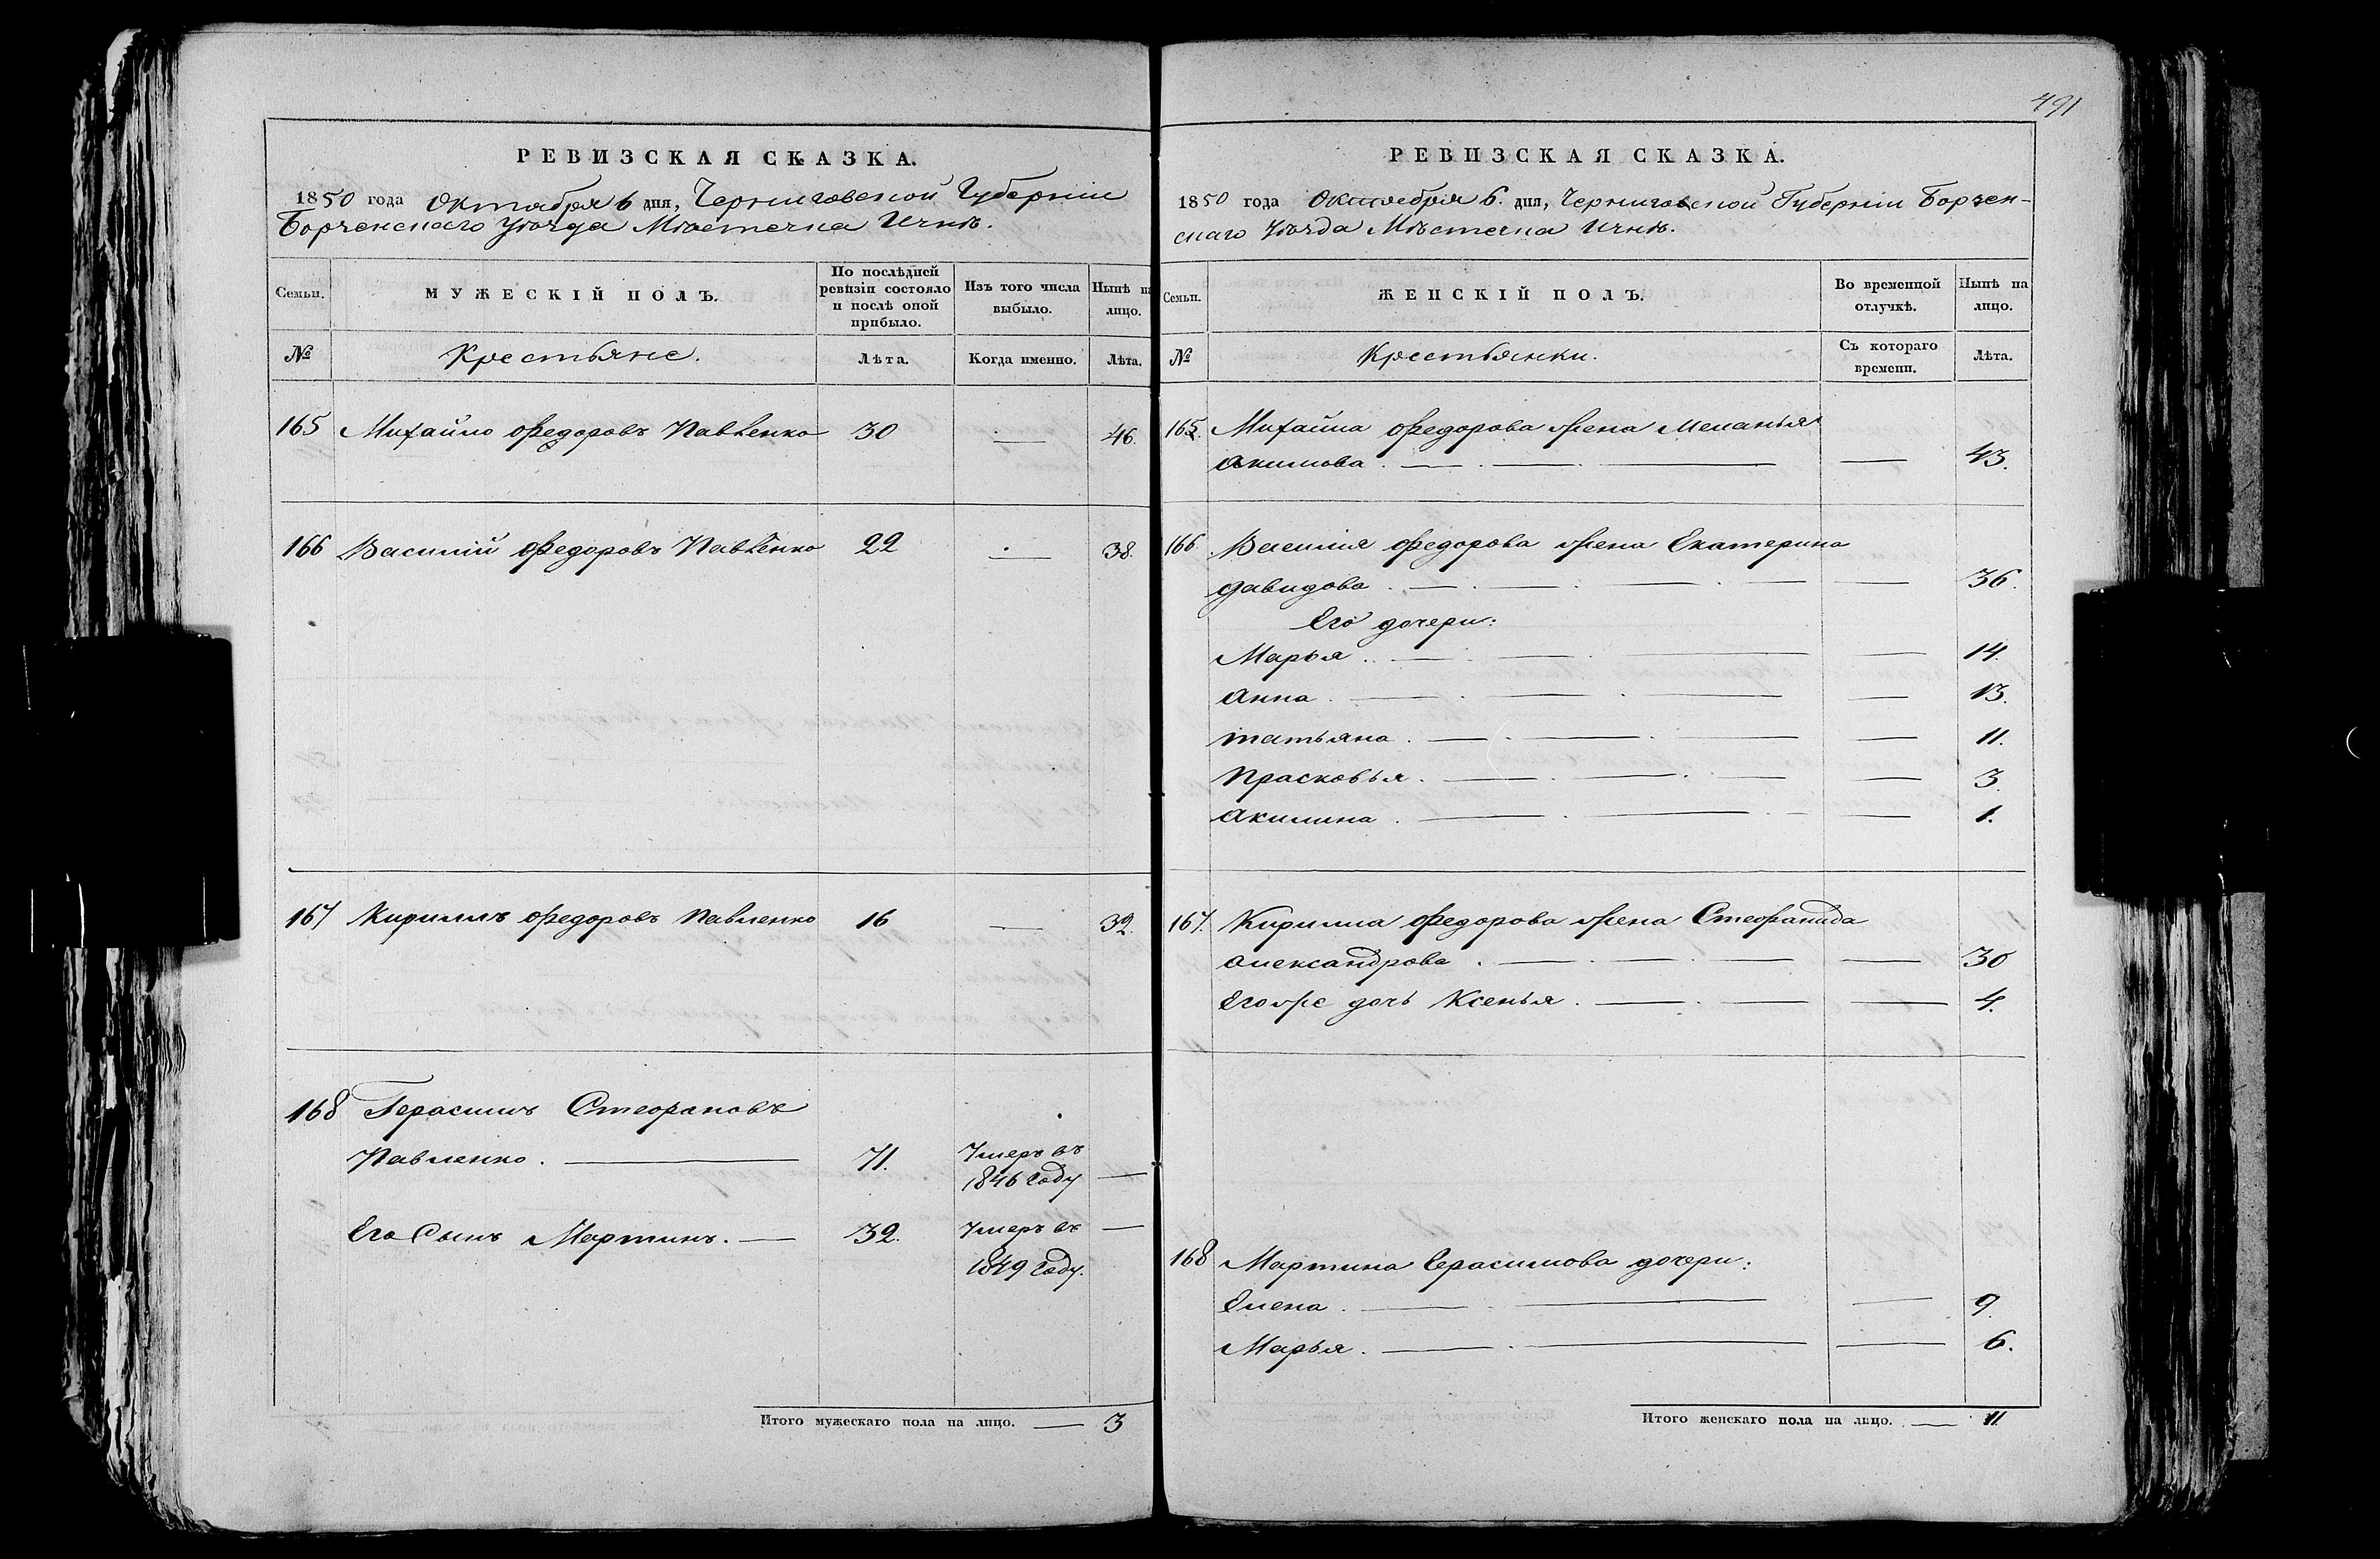 РЕВИЗСКАЯ СКАЗКА.
1850 года Октября 6 дня, Черниговской Губерніи
Борзенскаго Уѣзда Мѣстечка Ични.
Семьи.
МУЖЕСКІЙ ПОЛЪ.
По послѣдней
ревизіи состояло
и послѣ оной
прибыло.
Изъ того числа
выбыло.
Нынѣ на
лицо.
№
Крестьяне.
Лѣта.
Когда именно.
Лѣта.
165 Михайло Федоровъ Павленко 30 — 46.
166 Василій Федоровъ Павленко 22 — 38.
167 Кириллъ Федоровъ Павленко 16 — 32.
168 Герасимъ Стефановъ
Павленко. — 71. Умеръ въ
1846 году —
Его Сынъ Мартинъ. — 32. Умеръ въ —
1849 году.
Итого мужескаго пола на лицо. — 3
491
РЕВИЗСКАЯ СКАЗКА.
1850 года Октября 6. дня, Черниговской Губерніи Борзен-
скаго Уѣзда Мѣстечка Ични.
Семьи.
ЖЕНСКІЙ ПОЛЪ.
Во временной
отлучкѣ.
Нынѣ на
лицо.
№
Крестьянки.
Съ котораго
времени.
Лѣта.
165. Михайла Федорова жена Меланья
Акимова. — — 43.
166 Василія Федорова жена Екатерина
Давидова. — — 36.
Его дочери:
Марья. — — 14.
Анна. — — 13.
Татьяна. — — 11.
Прасковья. — — 3.
Акилина. — — 1.
167. Кирилла Федорова жена Стефанида
Александрова. — — 30
Егоже дочь Ксенья. — — 4.
168 Мартина Герасимова дочери:
Елена. — — 9.
Марья. — — 6.
Итого женскаго пола на лицо. — 11.